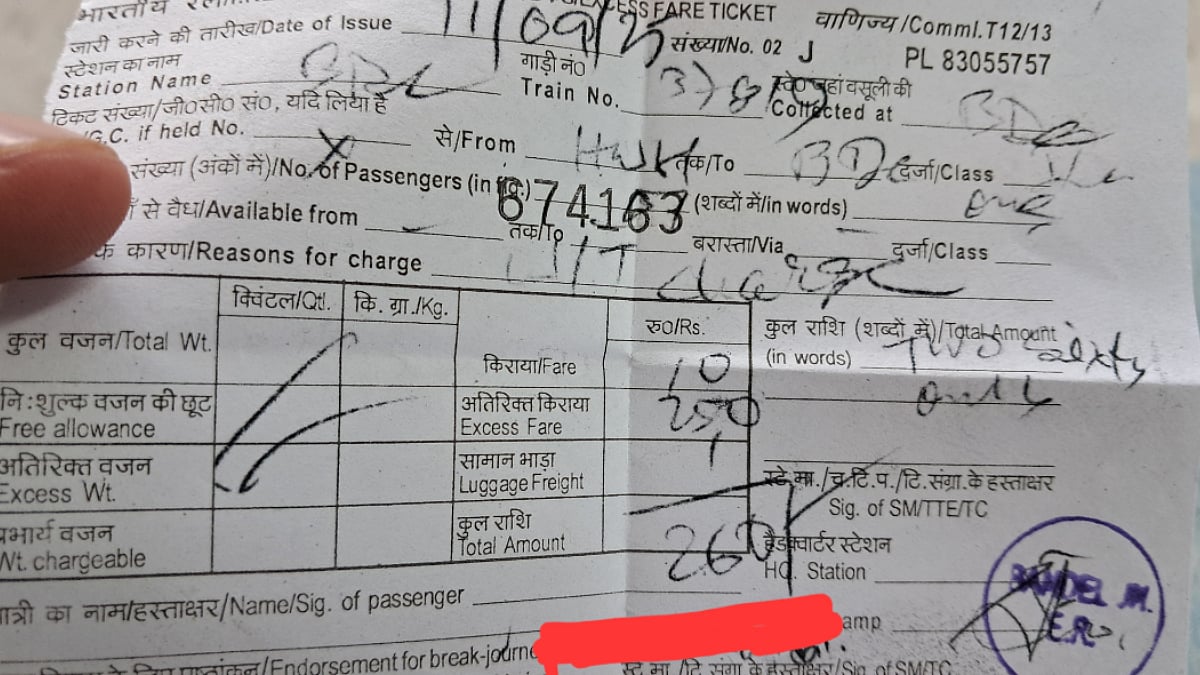 भारतीय
FARE TICKET
वाणिज्य/Comml.T12/13
जारी करने की तारीख/Date of Issue 11/09/25
संख्या/No. 02 J PL 83055757
स्टेशन का नाम
Station Name BDC
गाड़ी नं०
Train No.
जहां वसूली की
Collected at BDC
टिकट संख्या/जी०सी० सं०, यदि लिया है
G.C. if held No. X
से/From HWH तक/To BDC दर्जा/Class
संख्या (अंकों में)/No. of Passengers (in 674163 (शब्दों में/in words) one
से वैध/Available from तक/To बरास्ता/Via दर्जा/Class
के कारण/Reasons for charge W/T charge
क्विंटल/Qtl. कि. ग्रा./Kg. रु०/Rs.
कुल वजन/Total Wt. किराया/Fare 10
कुल राशि (शब्दों में)/Total Amount
(in words) Two sixty
only
नि:शुल्क वजन की छूट
Free allowance
अतिरिक्त किराया
Excess Fare 250
अतिरिक्त वजन
Excess Wt.
सामान भाड़ा
Luggage Freight
स्टे.मा./च.टि.प./टि.संग्रा.के हस्ताक्षर
Sig. of SM/TTE/TC
प्रभार्य वजन
Wt. chargeable
कुल राशि
Total Amount 260/
हैडक्वार्टर स्टेशन
HQ. Station
BANDEL JN.
E.R.
यात्री का नाम/हस्ताक्षर/Name/Sig. of passenger
amp
पृष्ठांकन/Endorsement for break-journe
स्टे मा /टि संग्रा के हस्ताक्षर/Sig. of SM/TC